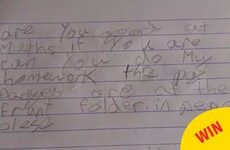 are you good at
Maths if you are
can you do My
homework the
are at the
front folder in
plese
WIN